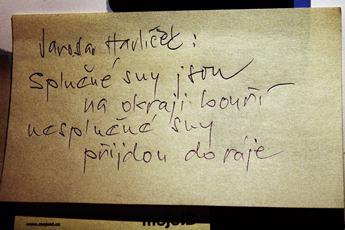 Jaroslav Havlíček:
Splněné sny jsou
na okraji bouří
nesplněné sny
přijdou do ráje
www.mojeid.cz
mojeID